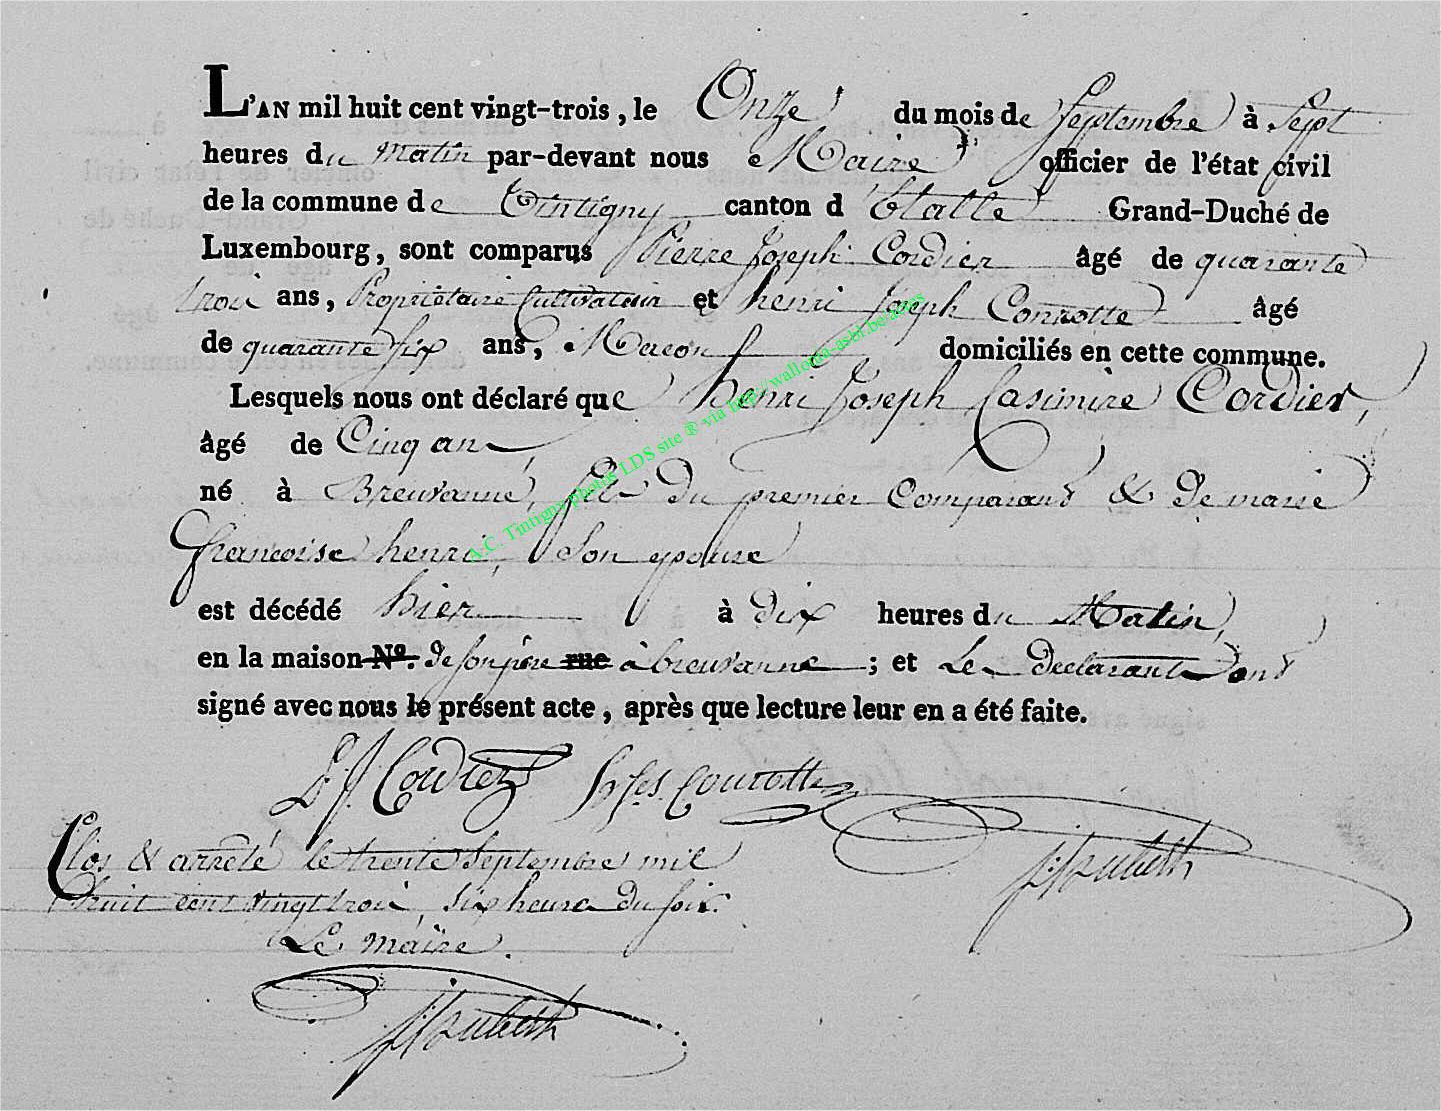 L'AN mil huit cent vingt-trois, le Onze du mois de Septembre à Sept
heures du Matin par-devant nous Maire officier de l'état civil
de la commune de Tintigny canton d'Etalle Grand-Duché de
Luxembourg, sont comparus Pierre Joseph Cordier âgé de quarante
trois ans, Propriétaire Cultivateur et henri Joseph Conrotte âgé
de quarante six ans, Macon domiciliés en cette commune.
Lesquels nous ont déclaré que henri Joseph Casimire Cordier,
âgé de Cinq ans,
né à Breuvanne, fils du premier Comparant & de marie
francoise henri, Son epouse
est décédé hier à dix heures du Matin,
en la maison No. de son père rue à breuvanne ; et Les declarants ont
signé avec nous le présent acte, après que lecture leur en a été faite.
P. J. Cordier h Jos. Conrotte
Clos & arrêté le trente Septembre mil
huit cent vingt trois, six heures du soir.
Le maire.
A.C. Tintigny photos LDS site ® via http://wallonia-asbl.be/actes